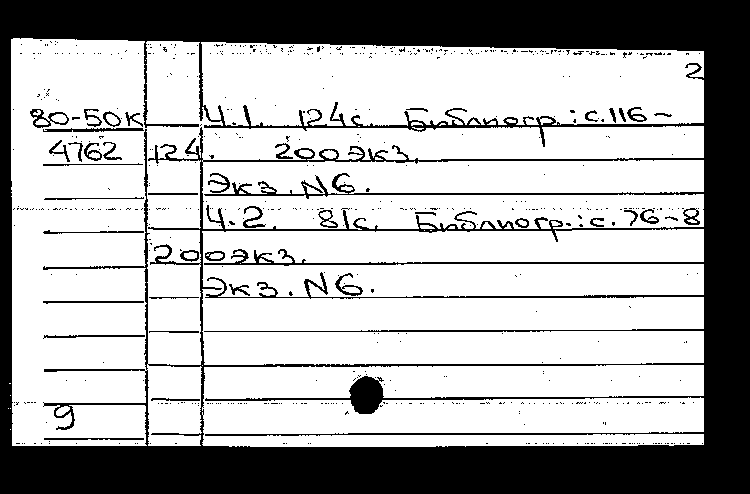 2
80-50К Ч.1. 124с. Библиогр.: с.116-
4762 124. 200экз.
Экз. N6.
Ч.2. 81с. Библиогр.: с. 76-8
200экз.
Экз. N6.
9